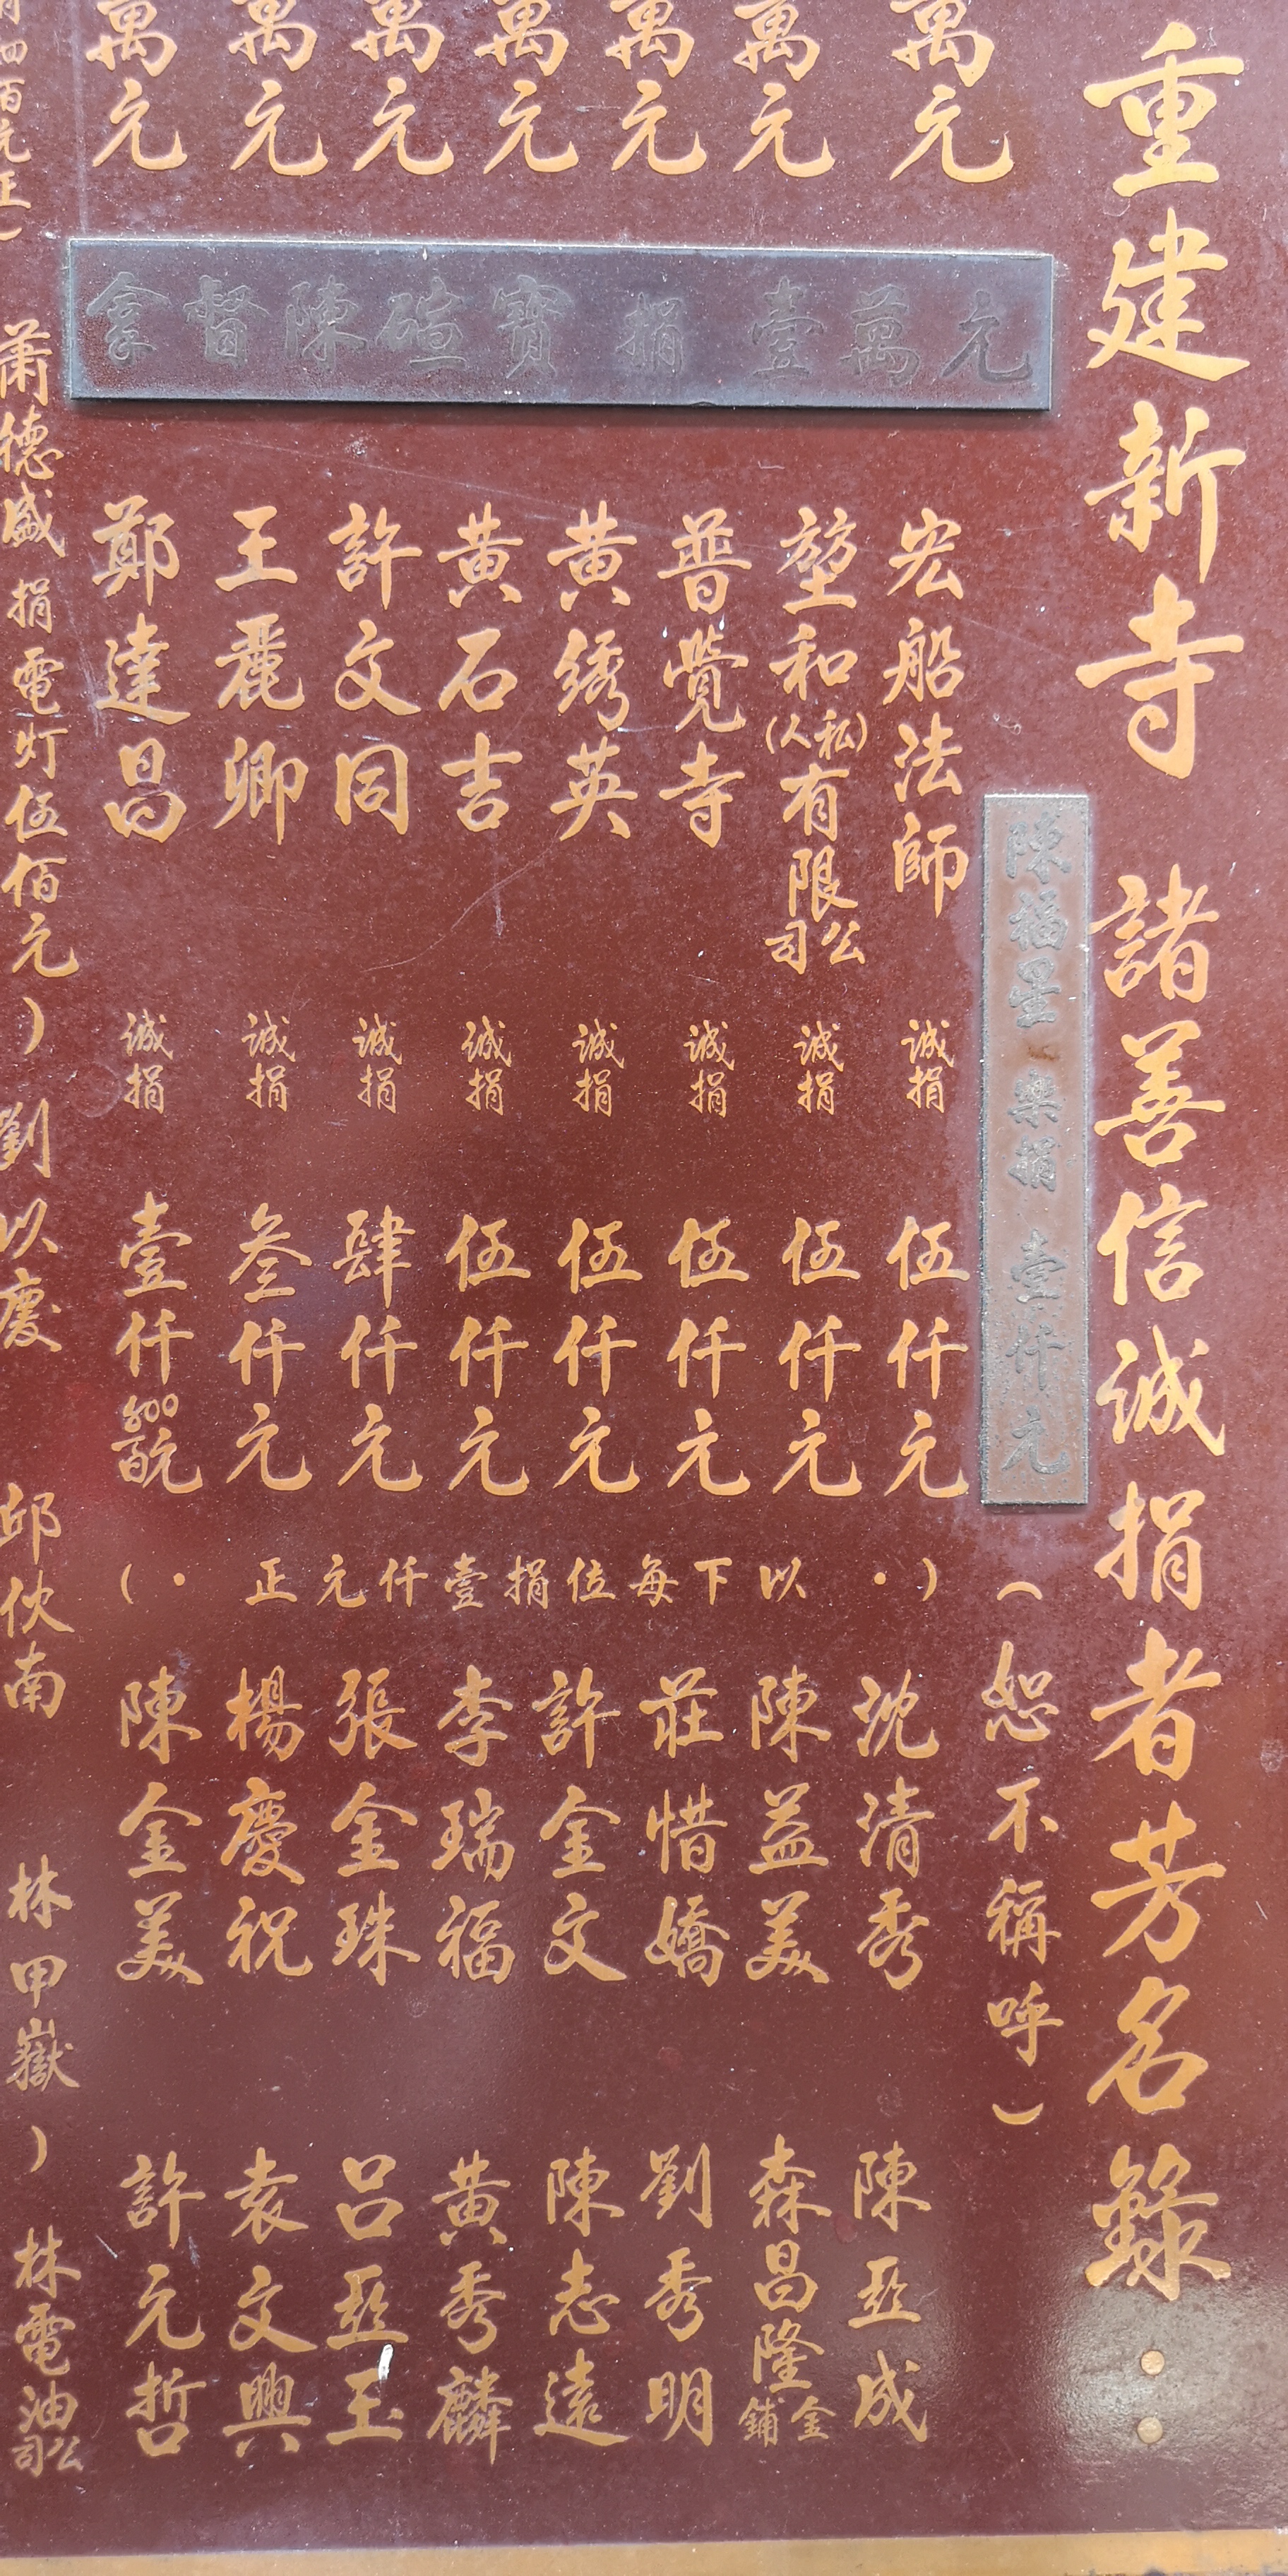 重建新寺 諸善信誠捐者芳名錄：
（恕不稱呼）
陳福星 樂捐 壹仟元
萬元
萬元
萬元
萬元
萬元
萬元
萬元
拿督陳碹寶 捐 壹萬元
宏船法師 誠捐 伍仟元
堃和(私人)有限公司 誠捐 伍仟元
普覺寺 誠捐 伍仟元
黃綉英 誠捐 伍仟元
黃石吉 誠捐 伍仟元
許文同 誠捐 肆仟元
王麗卿 誠捐 叁仟元
鄭達昌 誠捐 壹仟 元
（·以下每位捐壹仟元正·）
沈清秀
陳益美
莊惜嬌
許金文
李瑞福
張金珠
楊慶祝
陳金美
陳亞成
森昌隆金鋪
劉秀明
陳志遠
黃秀麟
呂亞玉
袁文興
許元哲
四百元正）
蕭德盛 捐電灯伍佰元）
劉以慶
邱伙南
林甲嶽）
林電油公司